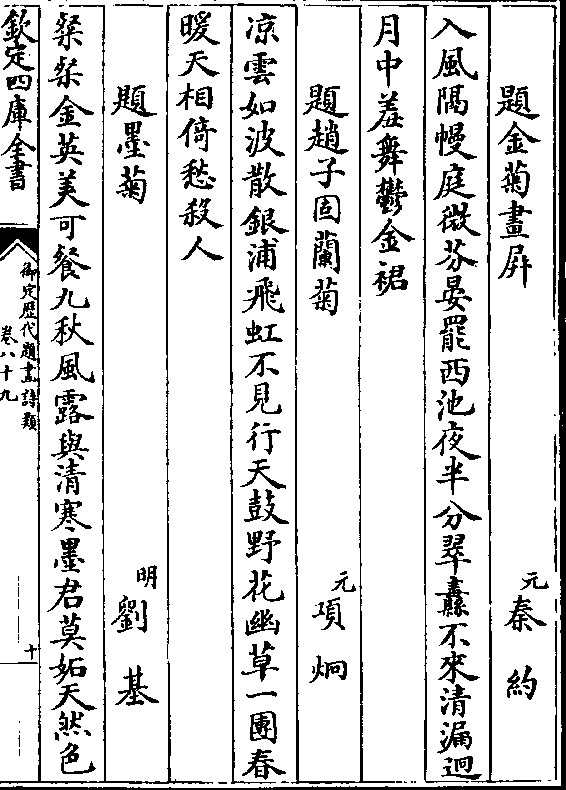 題金菊畫屏
元 秦約
入風隅幔庭微芬晏罷西池夜半分翠纛不來清漏迥
月中羞舞鬱金裙
題趙子固蘭菊
元 項炯
凉雲如波散銀浦飛虹不見行天鼓野花幽草一團春
暖天相倚愁殺人
題墨菊
明 劉基
粲粲金英美可餐九秋風露與清寒墨君莫妬天然色
欽定四庫全書
御定歷代題畫詩類
卷八十九
十